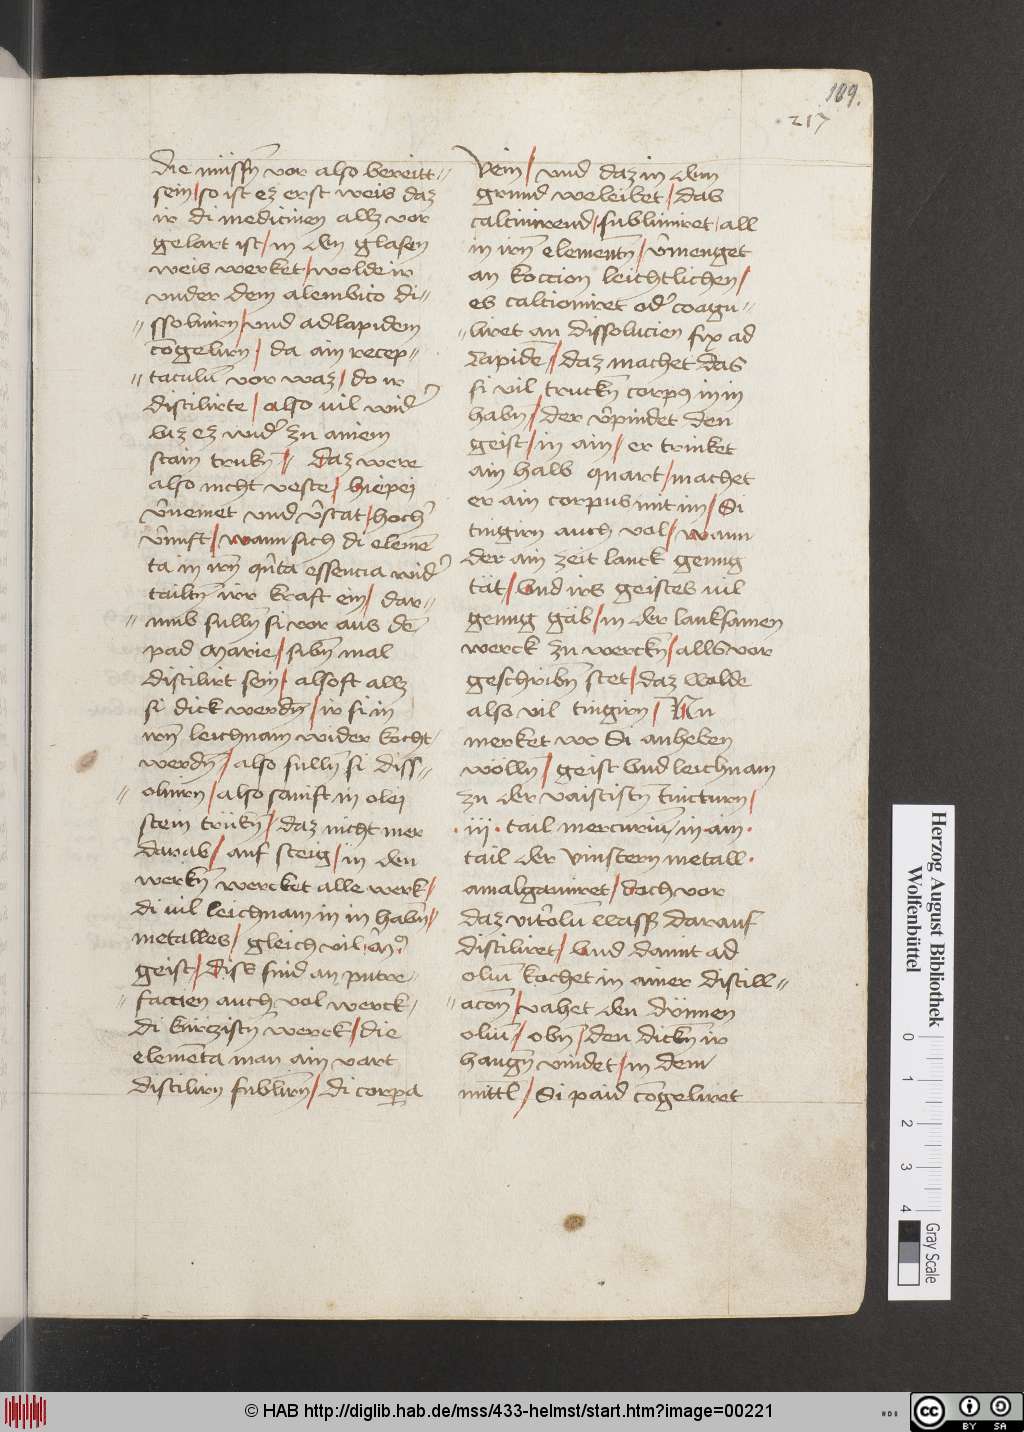 189.
217
die müssn̄ vor also bereitt//
sein/so ist ez erst weis daz
ir di medicinen allz vor
gelart ist/in den glasen
weis werket/wolde ir
vnder dem alembico di//
//ssoluirn/vnd ad lapidem
cōgelirn/ da ain recep//
//taculū vor waz/do ir
distilirte/also uil wider̄
biz ez wider̄ zu ainem
stain trukn̄// Daz were
also nicht veste/hiepei
v̄nemet vnd v̄stat/hoch̄
v̄nuft/wann sich di elemē
ta in irn̄ qn̄ta essencia wider̄
tailtn̄ irr kraft ein/ dar//
//umb sullen̄ si vor aus dē
pad Marie/sibn̄ mal
distilirt sein/alsoft allz
si dick werdn̄/ir si in
irn̄ leichnam wider kocht/
werdn̄/also sullen̄ si diss//
//oluirn/also sanft in olei
stein trükn̄/daz nicht mer
darab/auf steig/in den
werkn̄ wercket alle werk/
di uil leichnam in in habn̄//
metalles/gleich vil
geist/dise sind an putre//
//faccien auch vol werck/
di kürczistn̄ werck/die
elemēta man ain vart
distilirn sublirn̄/di corpa
Vein/vnd daz in dem
grund weleibet/das
calcinirend/sublimiret/all
in irn̄ elementn̄/v̄menget
an koccion leichtlichen/
es calcioniret oder̄ coagu//
//liret an dissolucien fix ad
Lapidē/daz machet das
si uil truckn̄ corpꝰ in in
habn̄/der v̄pindet den
geist/in ain/er trinket
ain halb quart/machet
er ain corpus mit im/Si
tingirn auch vol/wann
der ain zeit lanck genug
tät/Vnd irs geistes uil
genug gäb/in der lanksamen
werck zu werckn̄/alls vor
geschribn̄ stet/daz wolde
also uil tingirn/Nu
merket wo Si anheben
wölln̄/geist Vnd leichnam
zu der vaististn̄ tincturn/
·iij· tail mercuriū in ain·
tail der vinstern metall·
amalgamiret/doch vor
daz vitrolū wasser darauf
distiliret/Vnd damit ad
oluī kochet in ainer distill//
//acōn/vahet den dünnen
oliū/obn̄/den dickn ir
hangn̄ vindet/in dem
mittl/Si paid cōgeliret
Herzog August Bibliothek
Wolfenbüttel
0 1 2 3 4
Gray Scale
© HAB http://diglib.hab.de/mss/433-helmst/start.htm?image=00221
HAB
cc BY SA